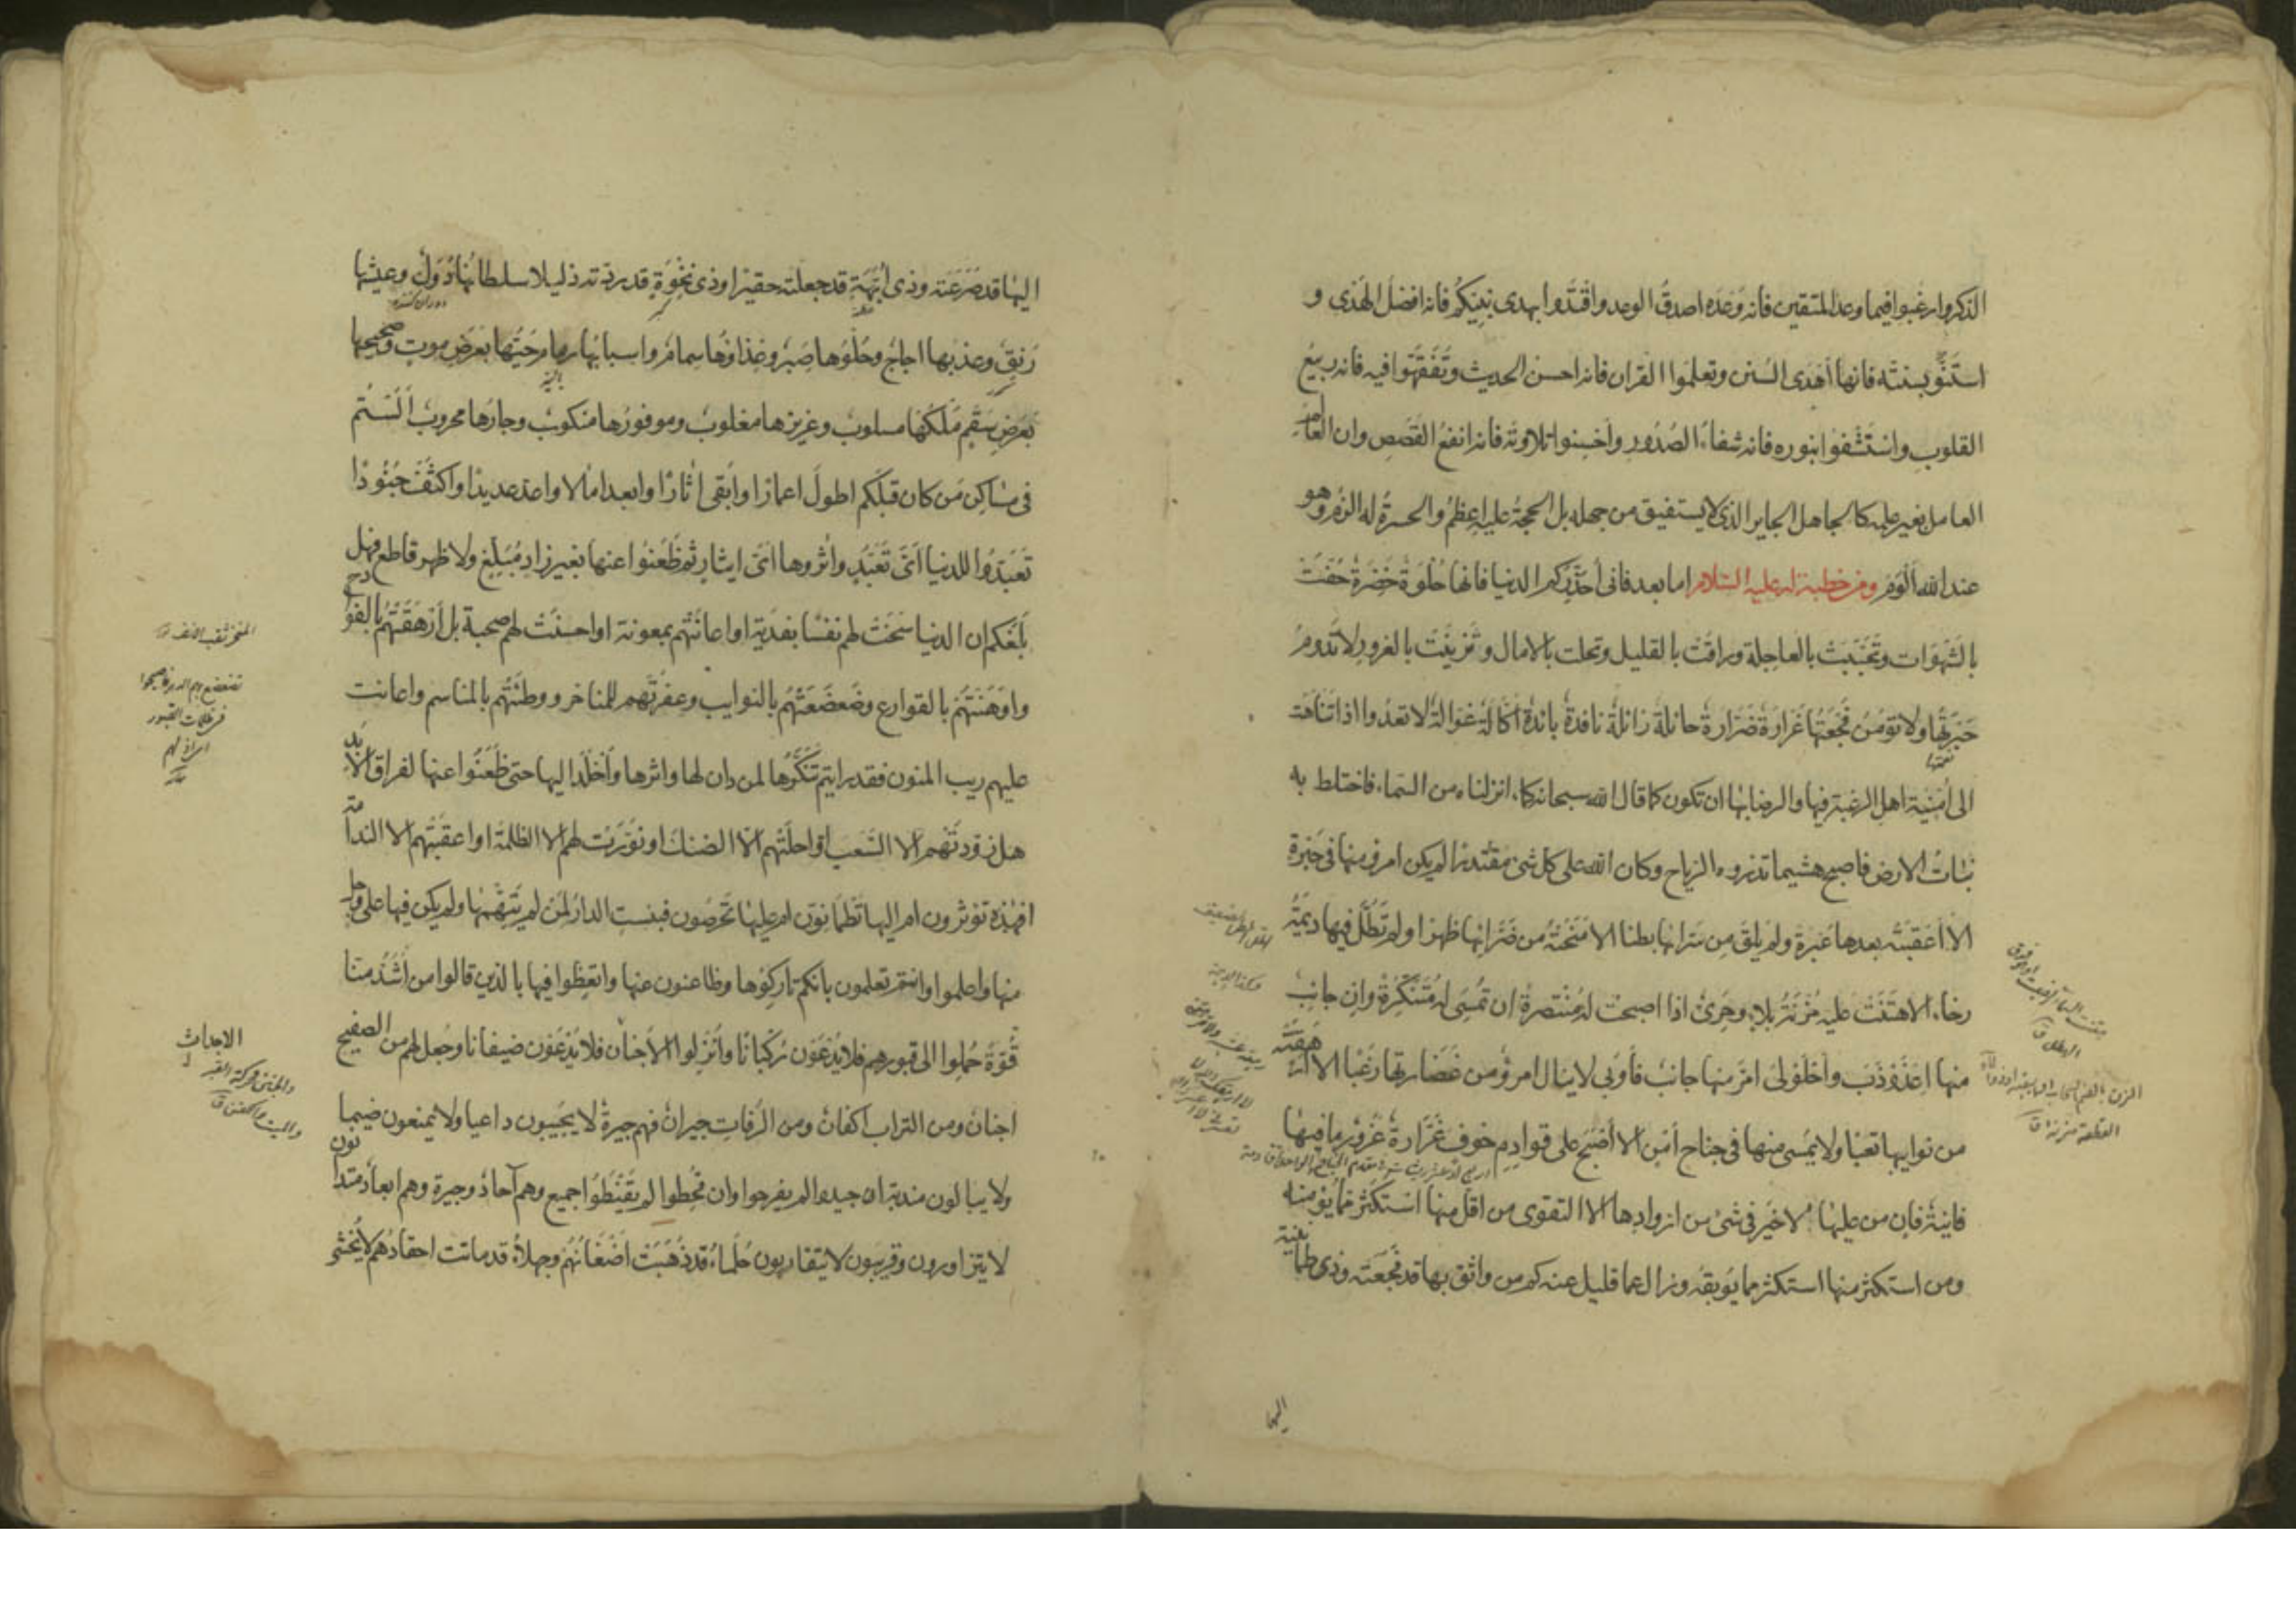 الذكر وارغبوا فيما وعد المتقين فانه وَعْدَه اصدقُ الوعد واقْتَدُوا بهدى نبيّكُم فانه افضل الهَدْى و
استَنُّو بسنته فانها اَهْدَى السُنن وتعلموا القران فانه احسن الحديث وتَفَقَّهوا فيه فانه ربيعُ
القلوب واستَشْفُوا بنوره فانه شفاءُ الصُدُور واَحْسِنوا تلاوته فانه انفعُ القَصَص وان العالم
العامل بغير علمه كالجاهل الجاير الذى لا يستفيق من جهله بل الحجة عليه اعظمُ والحسرةُ له الزمُ وهو
عند الله اَلْوَمُ ومن خطبة له عليه السلام اما بعد فانى اُحَذِّركم الدنيا فانها حُلْوَةٌ خَضَرةٌ حُفَّتْ
بالشَهَوَات وتَحَبَّبَتْ بالعاجِلة وراقَتْ بالقليل وتحلت بالامال وتَزَيَّنَتْ بالغرور لا تَدومُ
حَبْرتُها ولا تؤمَنُ فَجْعَتُها غَرّارةٌ ضَرّارةٌ حائلةٌ زائلةٌ نافدةٌ بائدةٌ اَكّالةٌ غوّالةٌ لا تعدُوا اذا تَناهَتْ
الى اُمْنِيّةِ اهلِ الرغبة فيها والرضا بها ان تكون كما قال الله سبحانه كماء انزلناه من السماء فاختلط به
نبات الارض فاصبح هشيما تذروه الرياح وكان الله على كل شئ مقتدرا لم يكن امرؤ منها فى حَبْرةٍ
الا اَعْقَبَتْه بعدها عَبْرةً ولم يلقَ مِن سَرّائها بطنا الا مَنَحَتْهُ من ضَرّائها ظهرًا ولم تَطُلَّه فيها ديمَةُ
رخاء الا هَتَنَتْ عليه مُزْنَةُ بلاءٍ وحَرِىٌّ اذا اصبحت له مُنْتصرةً ان تُمْسِىَ له مُتَنَكِّرةً وان جانِبٌ
منها اعْذَوْذَبَ واحْلَوْلَى اَمَرّ منها جانبٌ فاَوْبَى لا ينال امرؤٌ من غَضَارتها رَغَبًا الا ارهقته
من نوايبها تَعَبًا ولا يُمْسى منها فى جناح اَمْنٍ الا اَصْبح على قوادِم خوف غَرّارةٌ غُرُورٌ ما فيها
فانيةٌ فانٍ من عليها لا خَيْر فى شئ من ازوادها الا التقوى من اقلّ منها استَكْثر مما يُؤمنه
ومن استكثر منها استكثر مما يُوبقه وزال عما قليل عنه كم من واثق بها قد فَجَعَتْه وذى طمأنينة
اليها
اليها قد صَرَعَتْه وذى اُبَّهَةٍ قد جعلته حقيرًا وذى نَخْوَةٍ قد ردّته ذليلا سلطانها دُوَلٌ وعيشُها
رَنِقٌ وعذبها اجاجٌ وحُلْوُها صَبِرٌ وغذاؤها سِمامٌ واسبابها رمام حَيُّها بعَرَضِ موتٍ وصحيحها
بعَرَضِ سَقَمٍ مُلكُها مسلوبٌ وعزيزها مغلوبٌ وموفورُها منكوبٌ وجارُها محروبٌ اَلَسْتُم
فى مساكِن مَن كان قبلَكم اطولَ اعمارًا وابقى اثارًا وابعد امالا واعد عديدًا واكثَفَ جُنُودًا
تَعَبّدُوا للدنيا اَىَّ تَعَبُّدٍ واثروها اَىَّ ايثارٍ ثم ظَعَنُوا عنها بغير زادٍ مُبَلِّغ ولا ظهر قاطع فهل
بلَغَكم ان الدنيا سَخَتْ لهم نفسًا بفديةٍ او اعانتهم بمعونة او احسنَتْ لهم صحبة بل اَرْهقَتْهُم بالفوادح
واوْهَنَتْهُمْ بالقوارع وضَعْضَعَتْهُمْ بالنوايب وعفّرتهم للمناخر ووطئَتْهُم بالمناسم واعانت
عليهم ريب المنون فقد رايتم تنَكُّرَها لمن دان لها واثرها واَخْلَد اليها حتى ظَعَنُوا عنها لفراق الابد
هل زودتْهم الا السَّغَب او احلّتْهم الا الضنك او نوّرَتْ لهم الا الظلمة او اعقبَتْهم الا الندامة
افهذه تؤثرون ام اليها تَطْمَئنّون ام عليها تحرِصُون فبئست الدارُ لمَن لم يَتَّهِمْها ولم يكن فيها على وجل
منها واعلموا وانتم تعلمون بانكم تاركوها وظاعنون عنها واتعِظُوا فيها بالذين قالوا من اَشَدُّ منّا
قُوّةً حُمِلوا الى قبورهم فلا يُدْعَوْن رُكبانًا واُنْزِلوا الاَجْنان فلا يُدْعَوْن ضيفانا وجُعل لهم من الصفيح
اجنانٌ ومن التراب اكفانٌ ومن الرُفاتِ جيرانٌ فهم جيرةٌ لا يُجيبون داعيا ولا يمنعون ضيما
ولا يبالون مندبة ان جيدوا لم يفرحوا وان قُحِطوا لم يَقْنَطُوا جميع وهم آحادٌ وجيرة وهم ابعادٌ متدانون
لا يتزاورون وقريبون لا يتقاربون حُلَماءُ قد ذَهَبَتْ اَضْغَانُهُمْ وجهلاءُ قد ماتت احقادُهُم لا يُخْشى
الاجداث